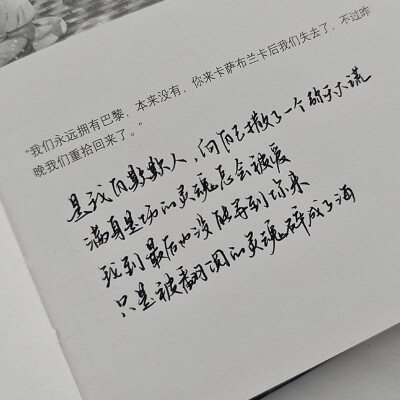 “我们永远拥有巴黎，本来没有，你来卡萨布兰卡后我们失去了，不过昨
晚我们重拾回来了。”
是我自欺欺人，向自己撒了一个弥天大谎
满身是的灵魂怎会被爱
到最后也没能等到你来
只是被翻阅的灵魂碎成了海